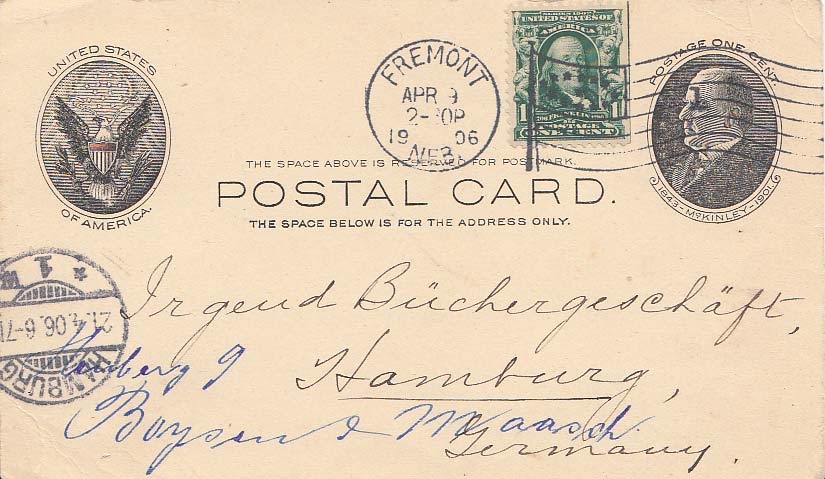 UNITED STATES
OF AMERICA.
FREMONT
APR 9
2-30P
19 06
NEB.
SERIES 1902
UNITED STATES OF
AMERICA
1 1
FRANKLIN
POSTAGE
ONE CENT
POSTAGE ONE CENT.
1843-McKINLEY-1901.
THE SPACE ABOVE IS RESERVED FOR POSTMARK.
POSTAL CARD.
THE SPACE BELOW IS FOR THE ADDRESS ONLY.
* 1 w
21.4.06.6-7
HAMBURG
Irgend Büchergeschäft,
Hamburg,
Germany.
Boysen & Maasch.